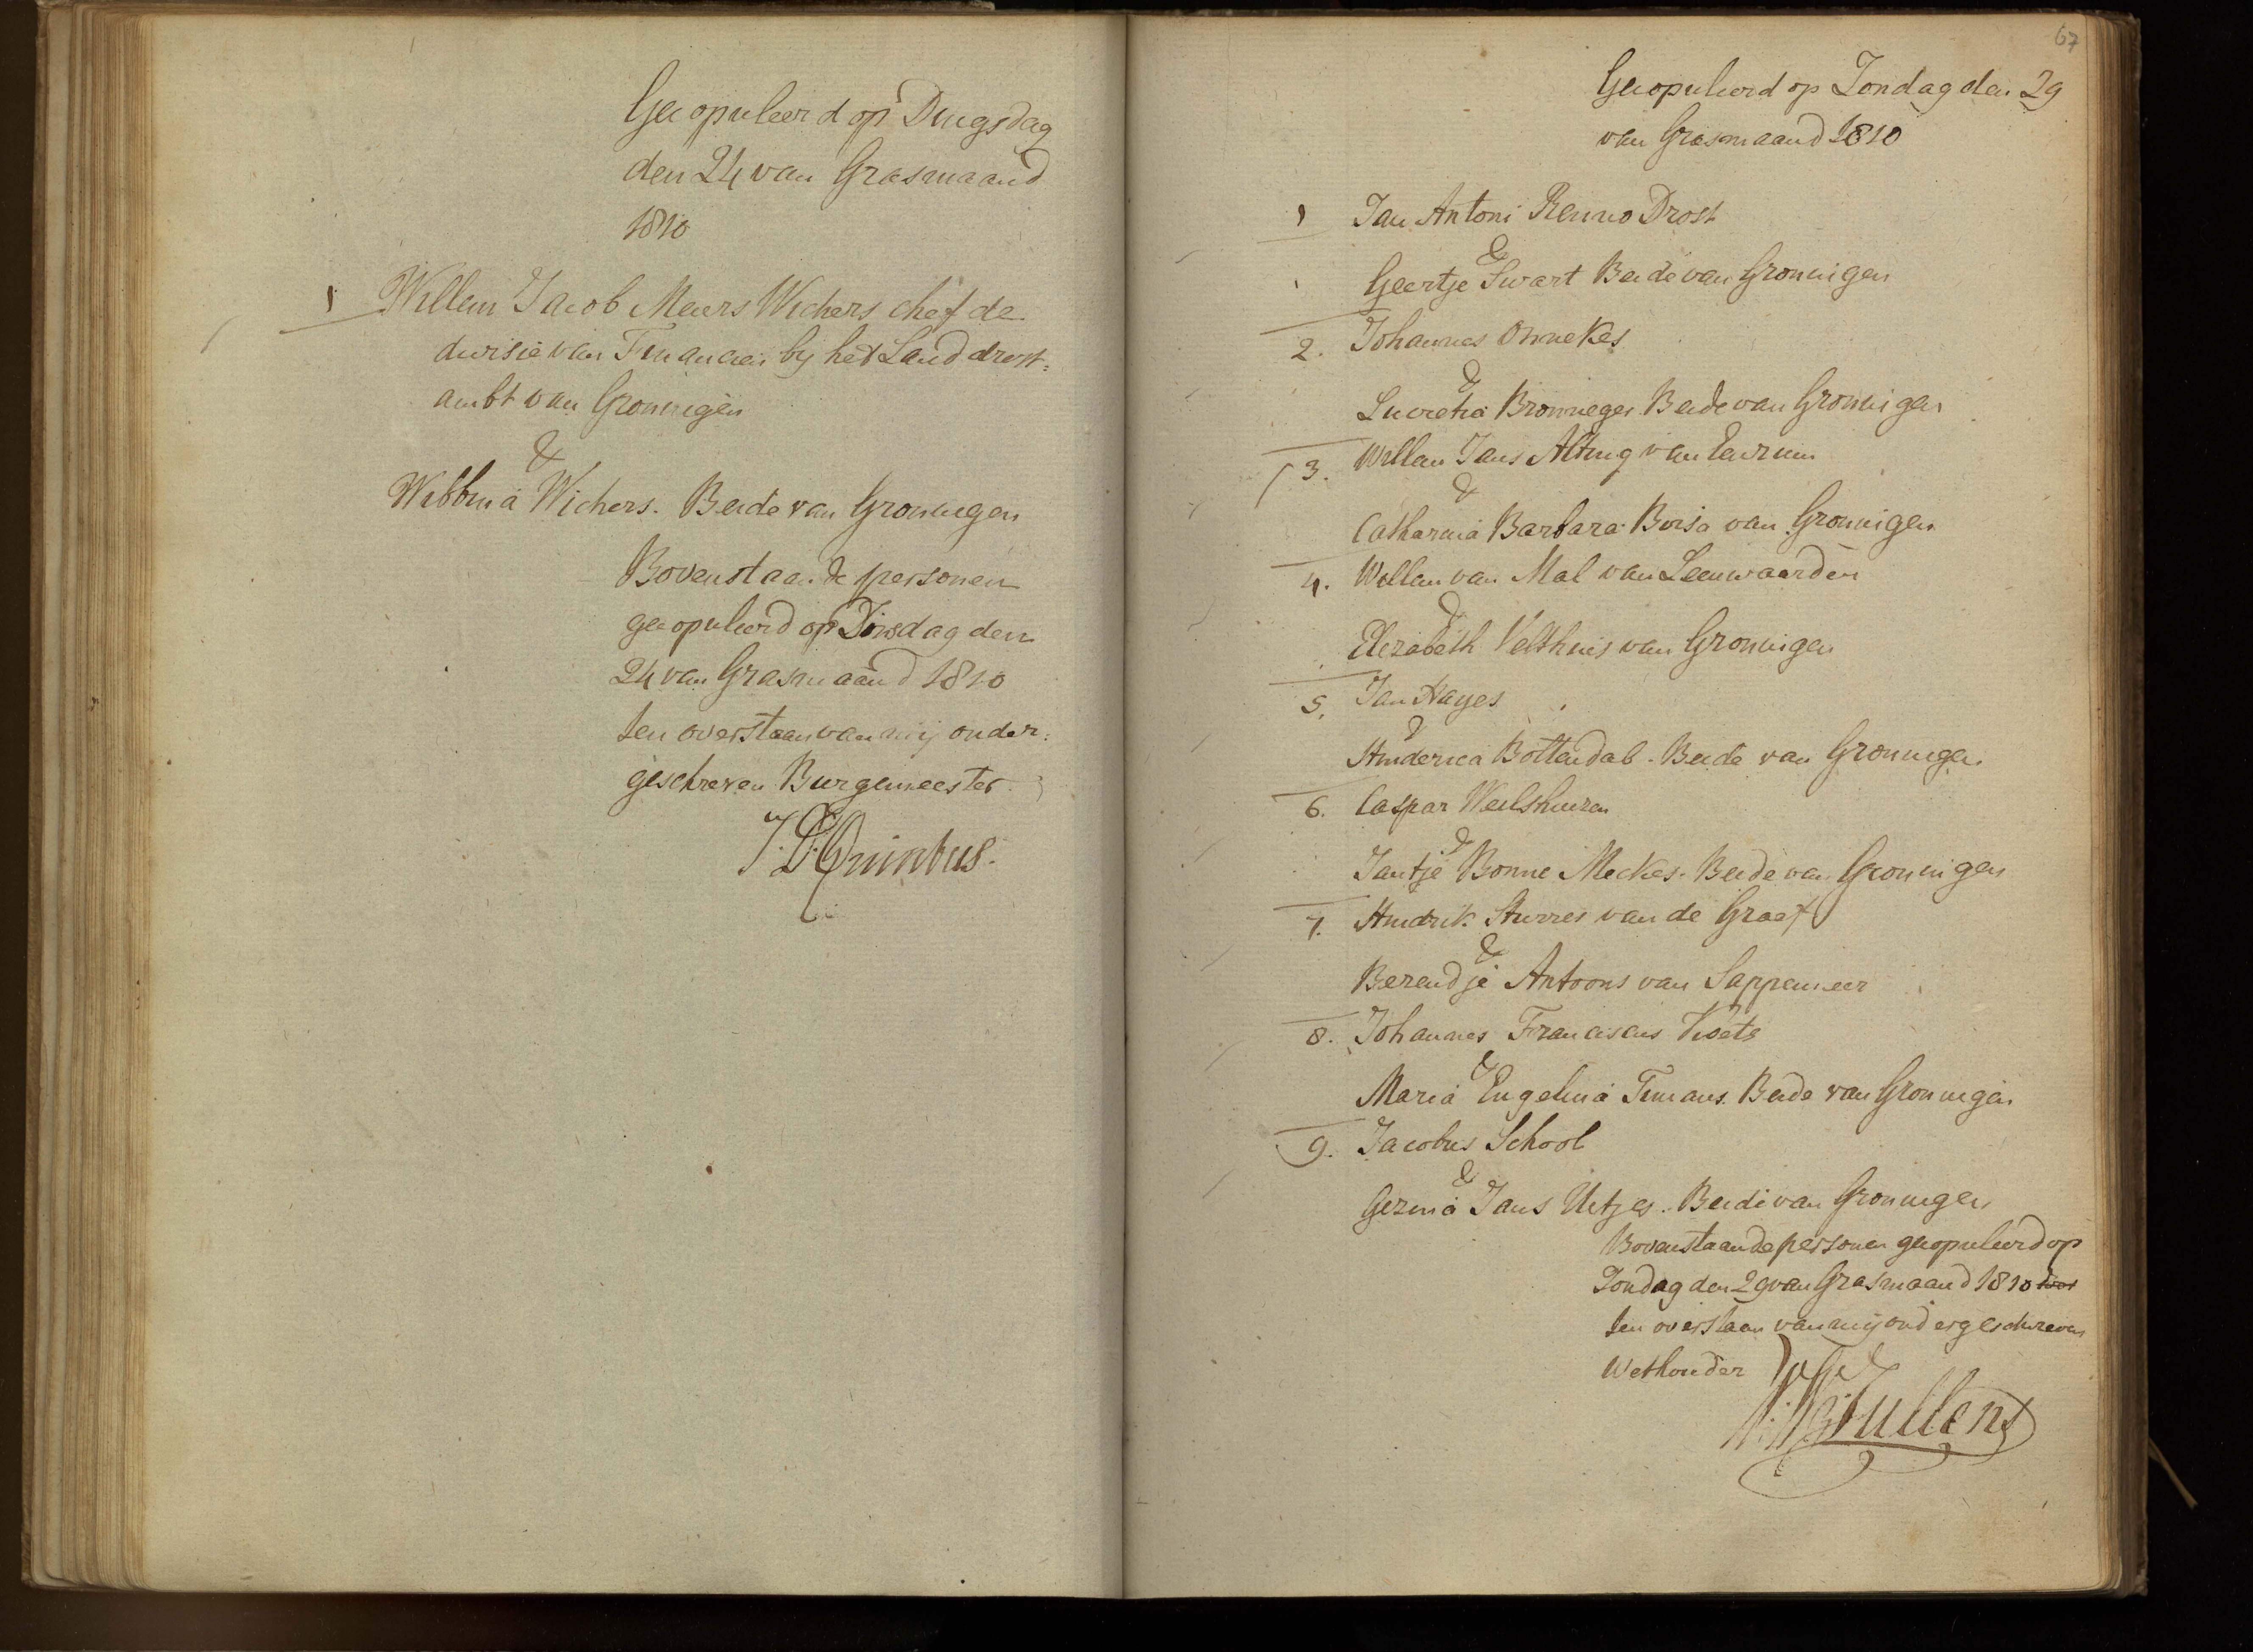 Gecopuleerd op Dingsdag
den 24 van Grasmaand
1810
1 Willem Jacob Meurs Wichers chef de
divisie van Financien by het Land drost=
ambt van Groningen
&
Wibbina Wichers. Beide van Groningen
Bovenstaande personen
gecopuleerd op Dinsdag den
24 van Grasmaand 1810
ten overstaan van mij onder=
geschreven Burgemeester
67
Gecopuleerd op Zondag den 29
van Grasmaand 1810
1 Jan Antoni Renno Drost
&
Geertje Swart Beide van Groningen
2. Johannes Onnekes
&
Lucretia Bronneger Beide van Groningen
3. Willem Jans Alting van Eenrum
&
Catharina Barbara Boisa van Groningen
4. Willem van Mal van Leeuwaarden
&
Elezabeth Velthuis van Groningen
5. Jan Hayes
&
Hinderica Bottendal. Beide van Groningen
6. Caspar Weilshuizen
&
Jantje Bonne Meckes. Beide van Groningen
7. Hindrik Sturres van de Graef
&
Berendje Antoons van Sappemeer
8. Johannes Franciscus Koets
&
Maria Engelina Timans. Beide van Groningen
9. Jacobus School
&
Gezina Jans Uetjes. Beide van Groningen
Bovenstaande personen gecopuleerd op
Zondag den 29 van Grasmaand 1810
ten overstaan van mij ondergeschreven
Wethouder